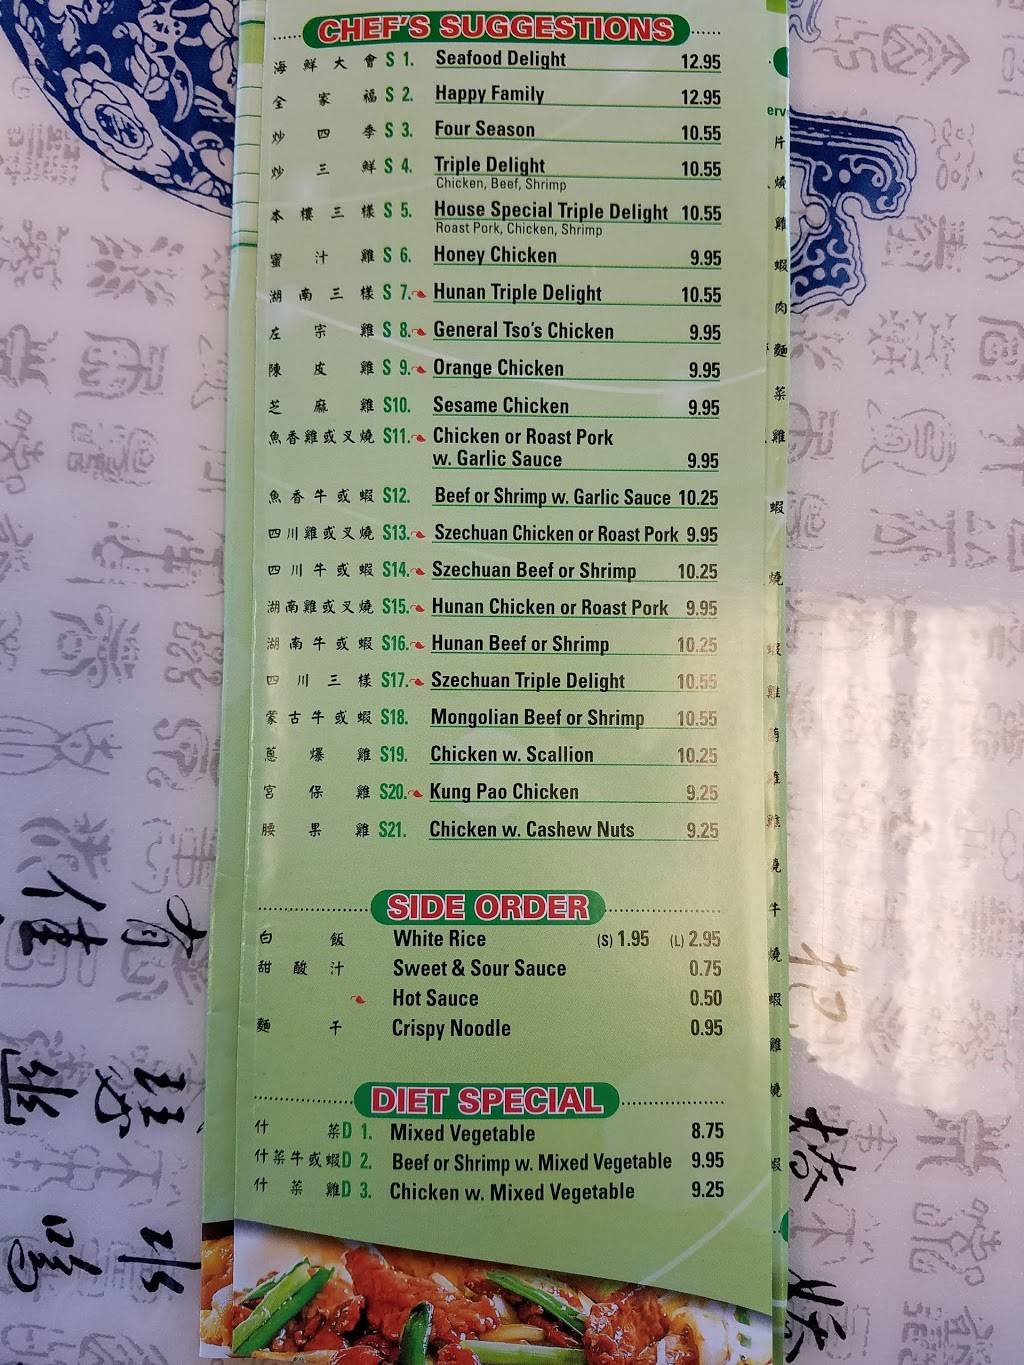 CHEF'S SUGGESTIONS
海鮮大會 S 1. Seafood Delight 12.95
全家福 S 2. Happy Family 12.95
炒四季 S 3. Four Season 10.55
炒三鮮 S 4. Triple Delight 10.55
Chicken, Beef, Shrimp
本樓三樣 S 5. House Special Triple Delight 10.55
Roast Pork, Chicken, Shrimp
蜜汁雞 S 6. Honey Chicken 9.95
湖南三樣 S 7. Hunan Triple Delight 10.55
左宗雞 S 8. General Tso's Chicken 9.95
陳皮雞 S 9. Orange Chicken 9.95
芝麻雞 S10. Sesame Chicken 9.95
魚香雞或叉燒 S11. Chicken or Roast Pork
w. Garlic Sauce 9.95
魚香牛或蝦 S12. Beef or Shrimp w. Garlic Sauce 10.25
四川雞或叉燒 S13. Szechuan Chicken or Roast Pork 9.95
四川牛或蝦 S14. Szechuan Beef or Shrimp 10.25
湖南雞或叉燒 S15. Hunan Chicken or Roast Pork 9.95
湖南牛或蝦 S16. Hunan Beef or Shrimp 10.25
四川三樣 S17. Szechuan Triple Delight 10.55
蒙古牛或蝦 S18. Mongolian Beef or Shrimp 10.55
蔥爆雞 S19. Chicken w. Scallion 10.25
宮保雞 S20. Kung Pao Chicken 9.25
腰果雞 S21. Chicken w. Cashew Nuts 9.25
SIDE ORDER
白飯 White Rice (S) 1.95 (L) 2.95
甜酸汁 Sweet & Sour Sauce 0.75
Hot Sauce 0.50
麵干 Crispy Noodle 0.95
DIET SPECIAL
什菜 D 1. Mixed Vegetable 8.75
什菜牛或蝦 D 2. Beef or Shrimp w. Mixed Vegetable 9.95
什菜雞 D 3. Chicken w. Mixed Vegetable 9.25